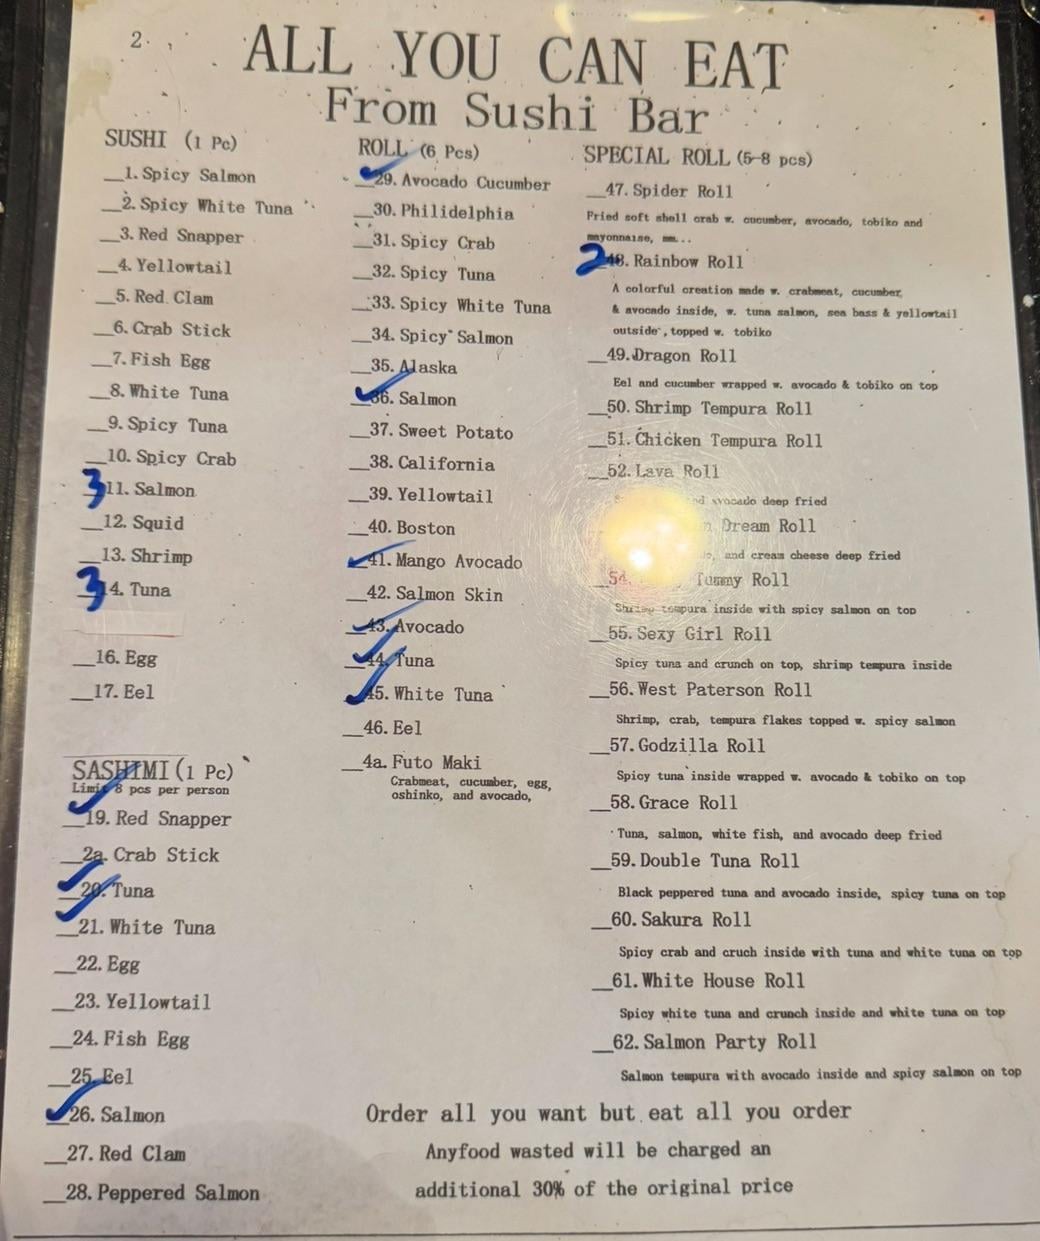 2
ALL YOU CAN EAT
From Sushi Bar
SUSHI (1 Pc)
__1. Spicy Salmon
__2. Spicy White Tuna
__3. Red Snapper
__4. Yellowtail
__5. Red Clam
__6. Crab Stick
__7. Fish Egg
__8. White Tuna
__9. Spicy Tuna
__10. Spicy Crab
3 11. Salmon
__12. Squid
__13. Shrimp
3 14. Tuna
__16. Egg
__17. Eel
SASHIMI (1 Pc)
Limit 8 pcs per person
__19. Red Snapper
__2a. Crab Stick
__20. Tuna
__21. White Tuna
__22. Egg
__23. Yellowtail
__24. Fish Egg
__25. Eel
__26. Salmon
__27. Red Clam
__28. Peppered Salmon
ROLL (6 Pcs)
__29. Avocado Cucumber
__30. Philidelphia
__31. Spicy Crab
__32. Spicy Tuna
__33. Spicy White Tuna
__34. Spicy Salmon
__35. Alaska
__36. Salmon
__37. Sweet Potato
__38. California
__39. Yellowtail
__40. Boston
__41. Mango Avocado
__42. Salmon Skin
__43. Avocado
__44. Tuna
__45. White Tuna
__46. Eel
__4a. Futo Maki
Crabmeat, cucumber, egg,
oshinko, and avocado,
SPECIAL ROLL (5-8 pcs)
__47. Spider Roll
Fried soft shell crab w. cucumber, avocado, tobiko and
mayonnaise,
2 48. Rainbow Roll
A colorful creation made w. crabmeat, cucumber
& avocado inside, w. tuna salmon, sea bass & yellowtail
outside, topped w. tobiko
__49. Dragon Roll
Eel and cucumber wrapped w. avocado & tobiko on top
__50. Shrimp Tempura Roll
__51. Chicken Tempura Roll
__52. Lava Roll
avocado deep fried
Dream Roll
and cream cheese deep fried
__54. Tummy Roll
Shrimp tempura inside with spicy salmon on top
__55. Sexy Girl Roll
Spicy tuna and crunch on top, shrimp tempura inside
__56. West Paterson Roll
Shrimp, crab, tempura flakes topped w. spicy salmon
__57. Godzilla Roll
Spicy tuna inside wrapped w. avocado & tobiko on top
__58. Grace Roll
Tuna, salmon, white fish, and avocado deep fried
__59. Double Tuna Roll
Black peppered tuna and avocado inside, spicy tuna on top
__60. Sakura Roll
Spicy crab and cruch inside with tuna and white tuna on top
__61. White House Roll
Spicy white tuna and crunch inside and white tuna on top
__62. Salmon Party Roll
Salmon tempura with avocado inside and spicy salmon on top
Order all you want but eat all you order
Anyfood wasted will be charged an
additional 30% of the original price